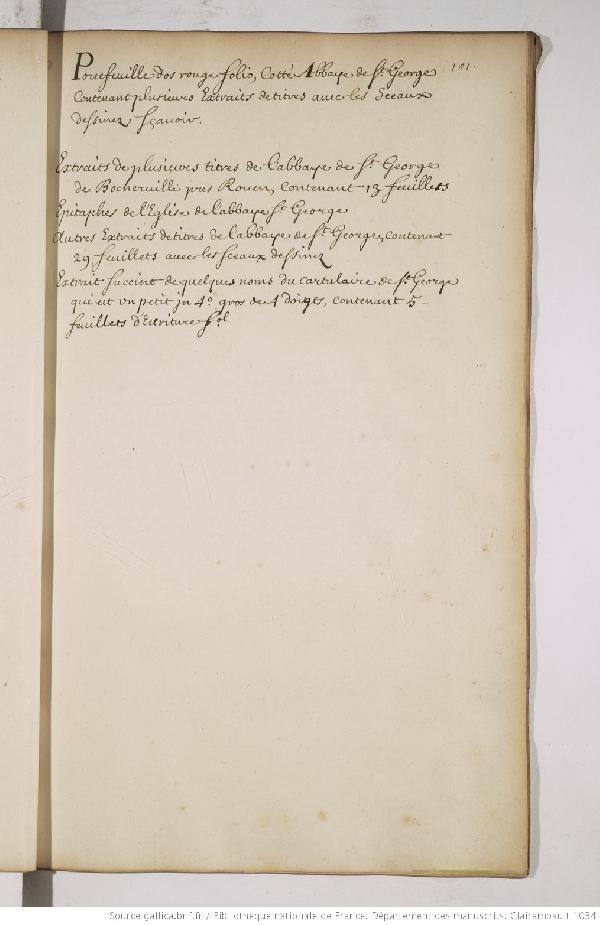 Portefeuille dos rouge folio, Cotté Abbaye de St. George 101.
Contenant plusieurs Extraits de titres avec les Sceaux
dessinez, sçavoir.
Extraits de plusieurs titres de l'abbaye de St. George
de Bocherville pres Rouen, contenant 13 feuillets
Epitaphes de l'Eglise de l'abbaye St. George
Autres Extraits de titres de l'abbaye de St. George, contenant
29 feuillets avec les sceaux dessinez
Extrait succint de quelques noms du cartulaire de St. George
qui est un petit jn 4o. gros de 4 doigts, contenant 5
feuillets d'Ecriture fol
Source gallica.bnf.fr / Bibliothèque nationale de France. Département des manuscrits. Clairambault 1034